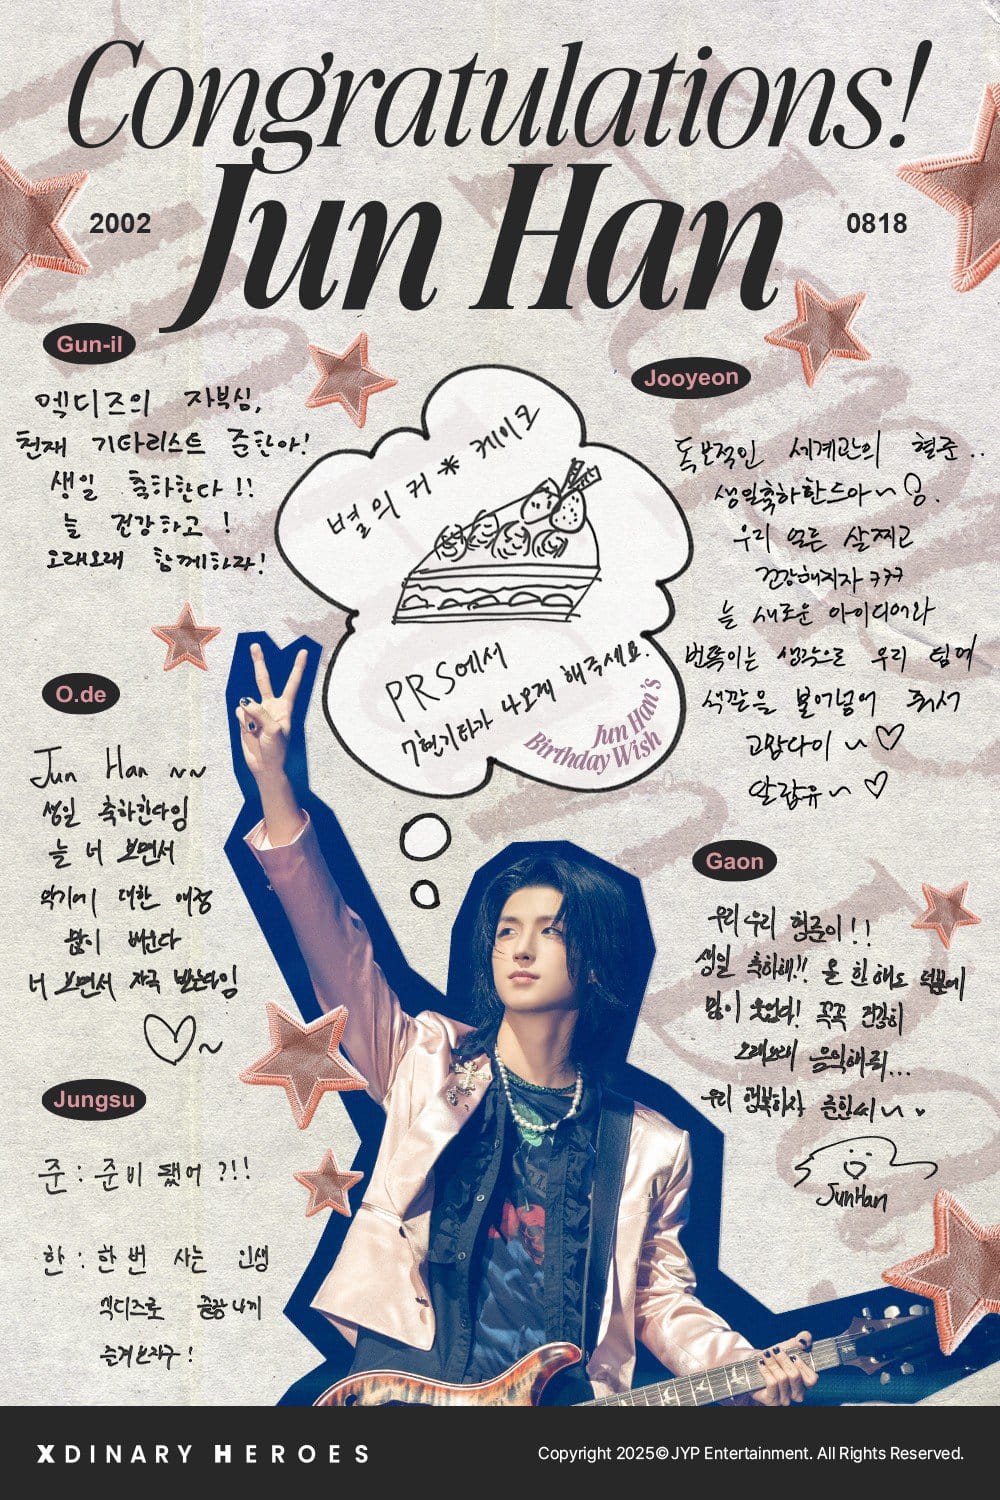 Congratulations!
Jun Han
2002
0818
Gun-il
엑디즈의 자부심,
천재 기타리스트 준한아!
생일 축하한다!!
늘 건강하고!
오래오래 함께하자!
Jooyeon
독보적인 세계관의 형준..
생일축하한드아~
우리 얼른 살찌고
건강해지자 ㅋㅋㅋ
늘 새로운 아이디어와
번뜩이는 생각으로 우리 팀에
색깔을 불어넣어 줘서
고맙다이~♡
알랍유~♡
별의 커*케이크
PRS에서
7현기타가 나오게 해주세요.
Jun Han's
Birthday Wish
O.de
Jun Han ~~
생일 축하한다임
늘 너 보면서
악기에 대한 애정
많이 배운다
너 보면서 자극 받는다임
♡~
Gaon
우리우리 형준이!!
생일 축하해!! 올 한 해도 덕분에
많이 웃었다! 꼭꼭 건강히
오래오래 음악해줘...
우리 행복하자 준한씨~
JunHan
Jungsu
준 : 준비 됐어?!!
한 : 한 번 사는 인생
엑디즈로 끝장나게
즐겨보자구!
XDINARY HEROES
Copyright 2025© JYP Entertainment. All Rights Reserved.